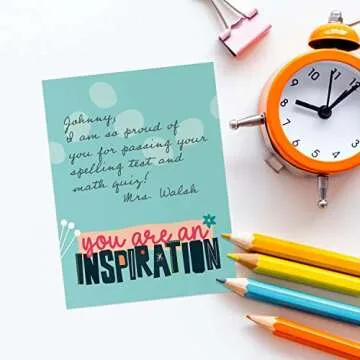 Johnny,
I am so proud of
you for passing your
spelling test and
math quiz!
Mrs. Walsh
you are an
INSPIRATION